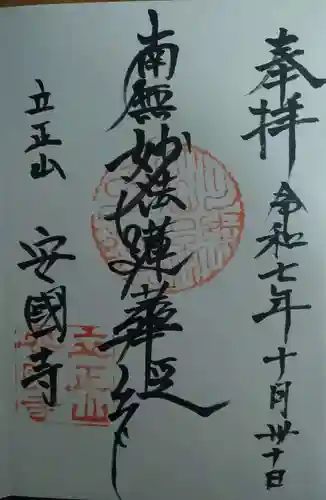 奉拝
令和七年十月卅十日
南無妙法蓮華経
立正山
安國寺
立正山